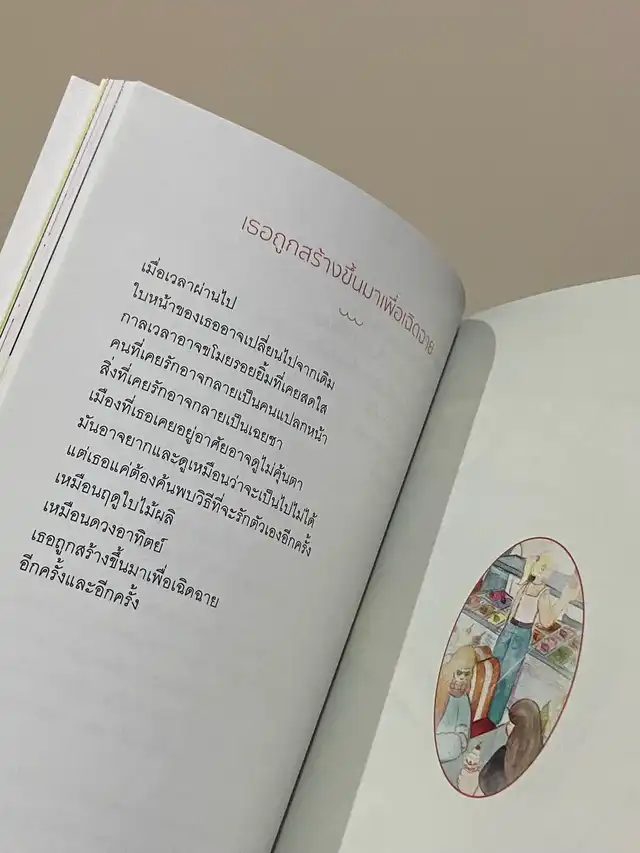 เธอถูกสร้างขึ้นมาเพื่อเฉิดฉาย
เมื่อเวลาผ่านไป
ใบหน้าของเธออาจเปลี่ยนไปจากเดิม
กาลเวลาอาจขโมยรอยยิ้มที่เคยสดใส
คนที่เคยรักอาจกลายเป็นคนแปลกหน้า
สิ่งที่เคยรักอาจกลายเป็นเฉยชา
เมืองที่เธอเคยอยู่อาศัยอาจดูไม่คุ้นตา
มันอาจยากและดูเหมือนว่าจะเป็นไปไม่ได้
แต่เธอแค่ต้องค้นพบวิธีที่จะรักตัวเองอีกครั้ง
เหมือนฤดูใบไม้ผลิ
เหมือนดวงอาทิตย์
เธอถูกสร้างขึ้นมาเพื่อเฉิดฉาย
อีกครั้งและอีกครั้ง